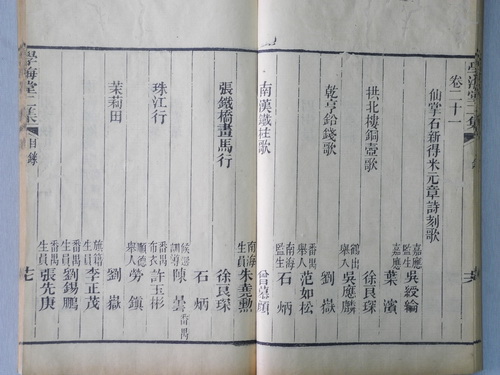 卷二十一
仙掌石新得米元章詩刻歌
嘉應監生 吳綬綸
嘉應 葉濱
徐良琛
拱北樓銅壺歌
鶴山舉人 吳應麟
劉嶽
乾亨鉛錢歌
番禺舉人 范如松
南海監生 石炳
南漢鐵柱歌
南海生員 朱堯勲
徐良琛
張鐵橋畫馬行
石炳
候選訓導 陳曇 番禺
珠江行
番禺布衣 許玉彬
順德舉人 勞鎮
劉嶽
茉莉田
旗籍生員 李正茂
番禺生員 劉錫鵬
番禺生員 張先庚
學海堂三集
目錄